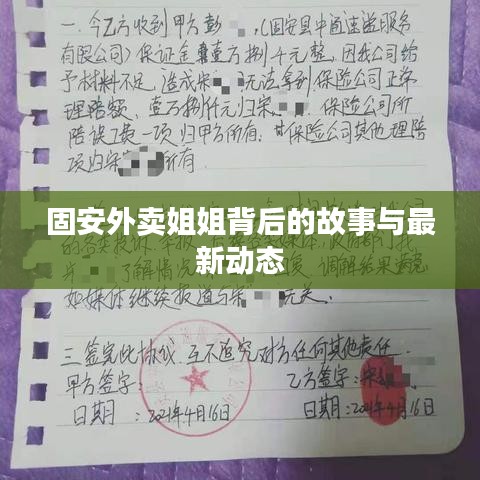 一.今乙方收到甲方彭 (固安县中通速溢服务
有限公司)保证金壹万捌仟元整,因我公司给
予材料不足,造成宋 无法拿到保险公司正常
理赔额,壹万捌仟元归宋 .保险公司所
陪误工费一项归甲方所有.其保险公司其他理陪
项归宋 所有.
固安外卖姐姐背后的故事与最
新动态
了解情况 调解结果满意
如媒体继续报道与宋 无关.
三.签完此协议,互不追究对方任何其他责任.
甲方签字: 乙方签字:宋
日期: 2021年4月16日 日期:2021年4月16日